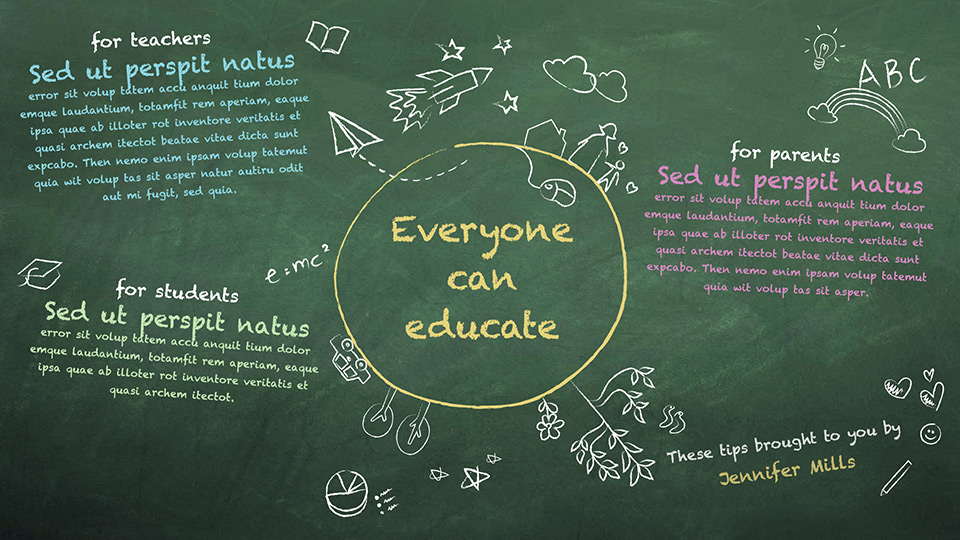 for teachers
Sed ut perspit natus
error sit volup tatem accu anquit tium dolor
emque laudantium, totamfit rem aperiam, eaque
ipsa quae ab illoter rot inventore veritatis et
quasi archem itectot beatae vitae dicta sunt
expcabo. Then nemo enim ipsam volup tatemut
quia wit volup tas sit asper natur autiru odit
aut mi fugit, sed quia.
ABC
for parents
Sed ut perspit natus
error sit volup tatem accu anquit tium dolor
emque laudantium, totamfit rem aperiam, eaque
ipsa quae ab illoter rot inventore veritatis et
quasi archem itectot beatae vitae dicta sunt
expcabo. Then nemo enim ipsam volup tatemut
quia wit volup tas sit asper.
Everyone
can
educate
e=mc²
for students
Sed ut perspit natus
error sit volup tatem accu anquit tium dolor
emque laudantium, totamfit rem aperiam, eaque
ipsa quae ab illoter rot inventore veritatis et
quasi archem itectot.
These tips brought to you by
Jennifer Mills